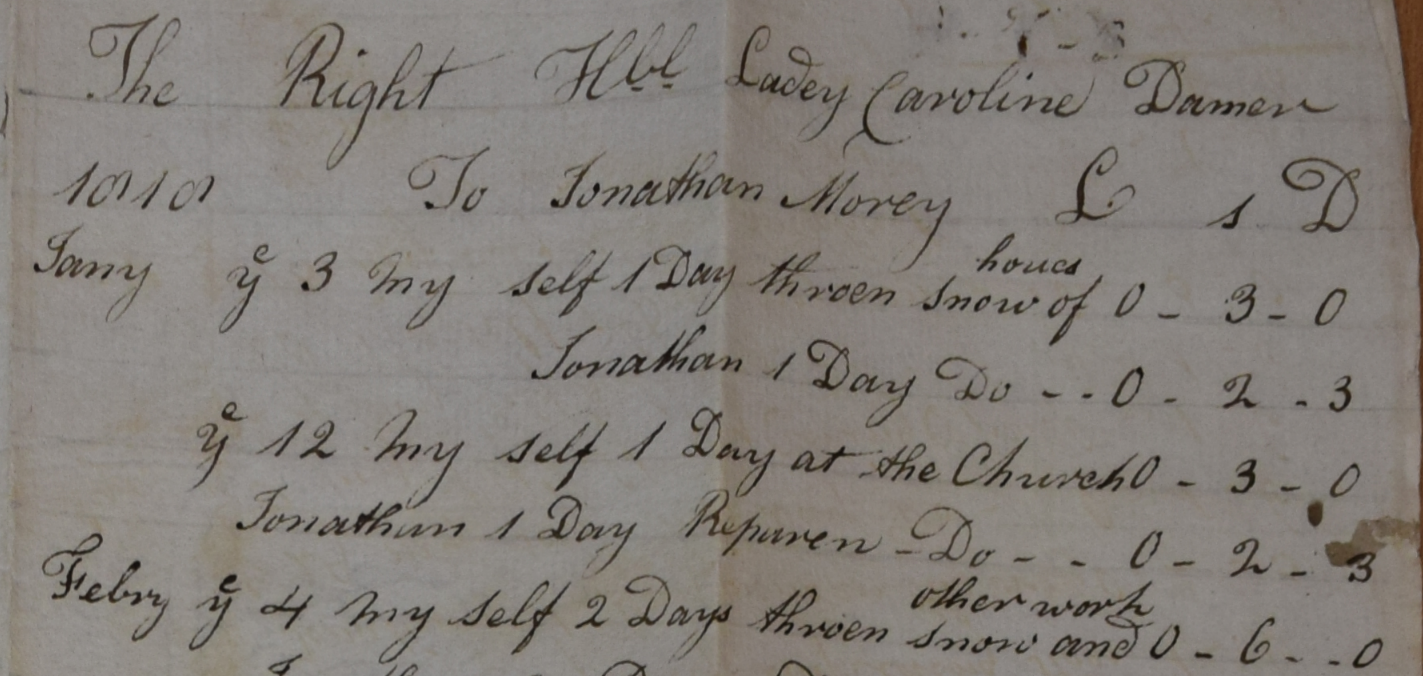 The Right Hbl Ladey Caroline Damer
1818 To Jonathan Morey L s D
Jany ye 3 my self 1 Day throen snow of houes 0 - 3 - 0
Jonathan 1 Day Do - - 0 - 2 - 3
ye 12 my self 1 Day at the Church 0 - 3 - 0
Jonathan 1 Day Reparen - Do - - 0 - 2 - 3
Febry ye 4 my self 2 Days throen snow and other work 0 - 6 - - 0